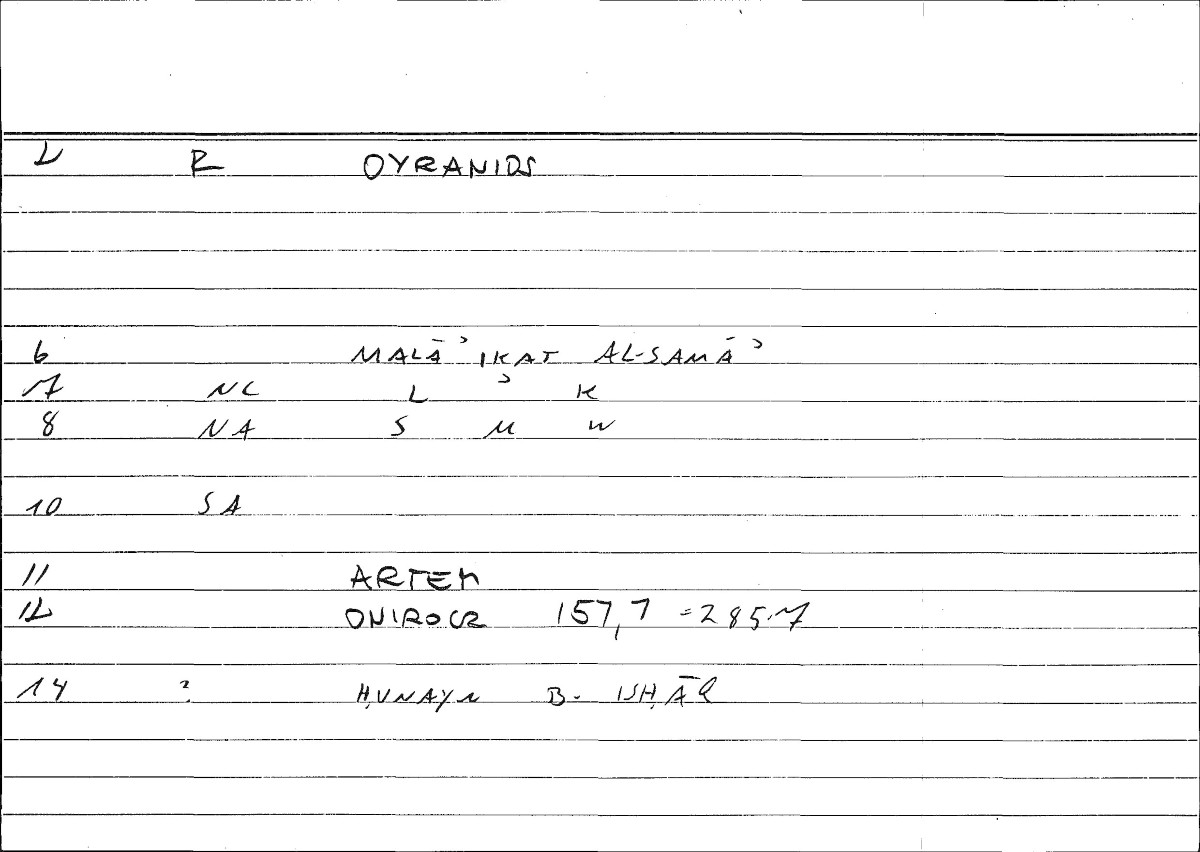 L R OYRANIDS
6 MALĀʾIKAT AL-SAMĀʾ
7 NC L ʾ K
8 NA S M W
10 SA
11 ARTEM
12 ONIROCR 157,7 =285.7
14 ? ḤUNAYN B. ISḤĀQ